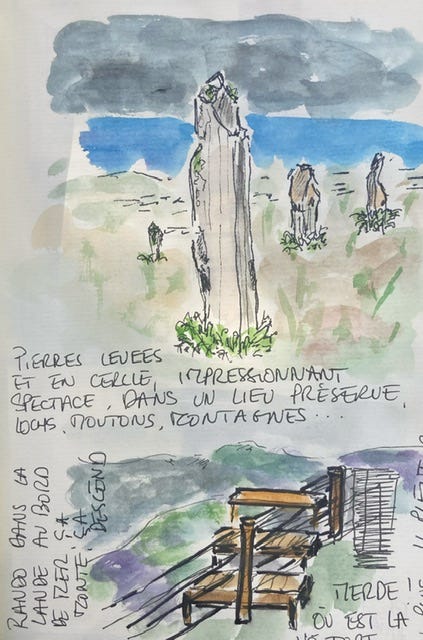 PIERRES LEVEES
ET EN CERCLE, IMPRESSIONNANT
SPECTACE, DANS UN LIEU PRÉSERVE,
LOCHS, MOUTONS, MONTAGNES...
RANDO DANS LA
LANDE AU BORD
DE MER ÇA
MONTE. ÇA
DESCEND
MERDE !
OÙ EST LA